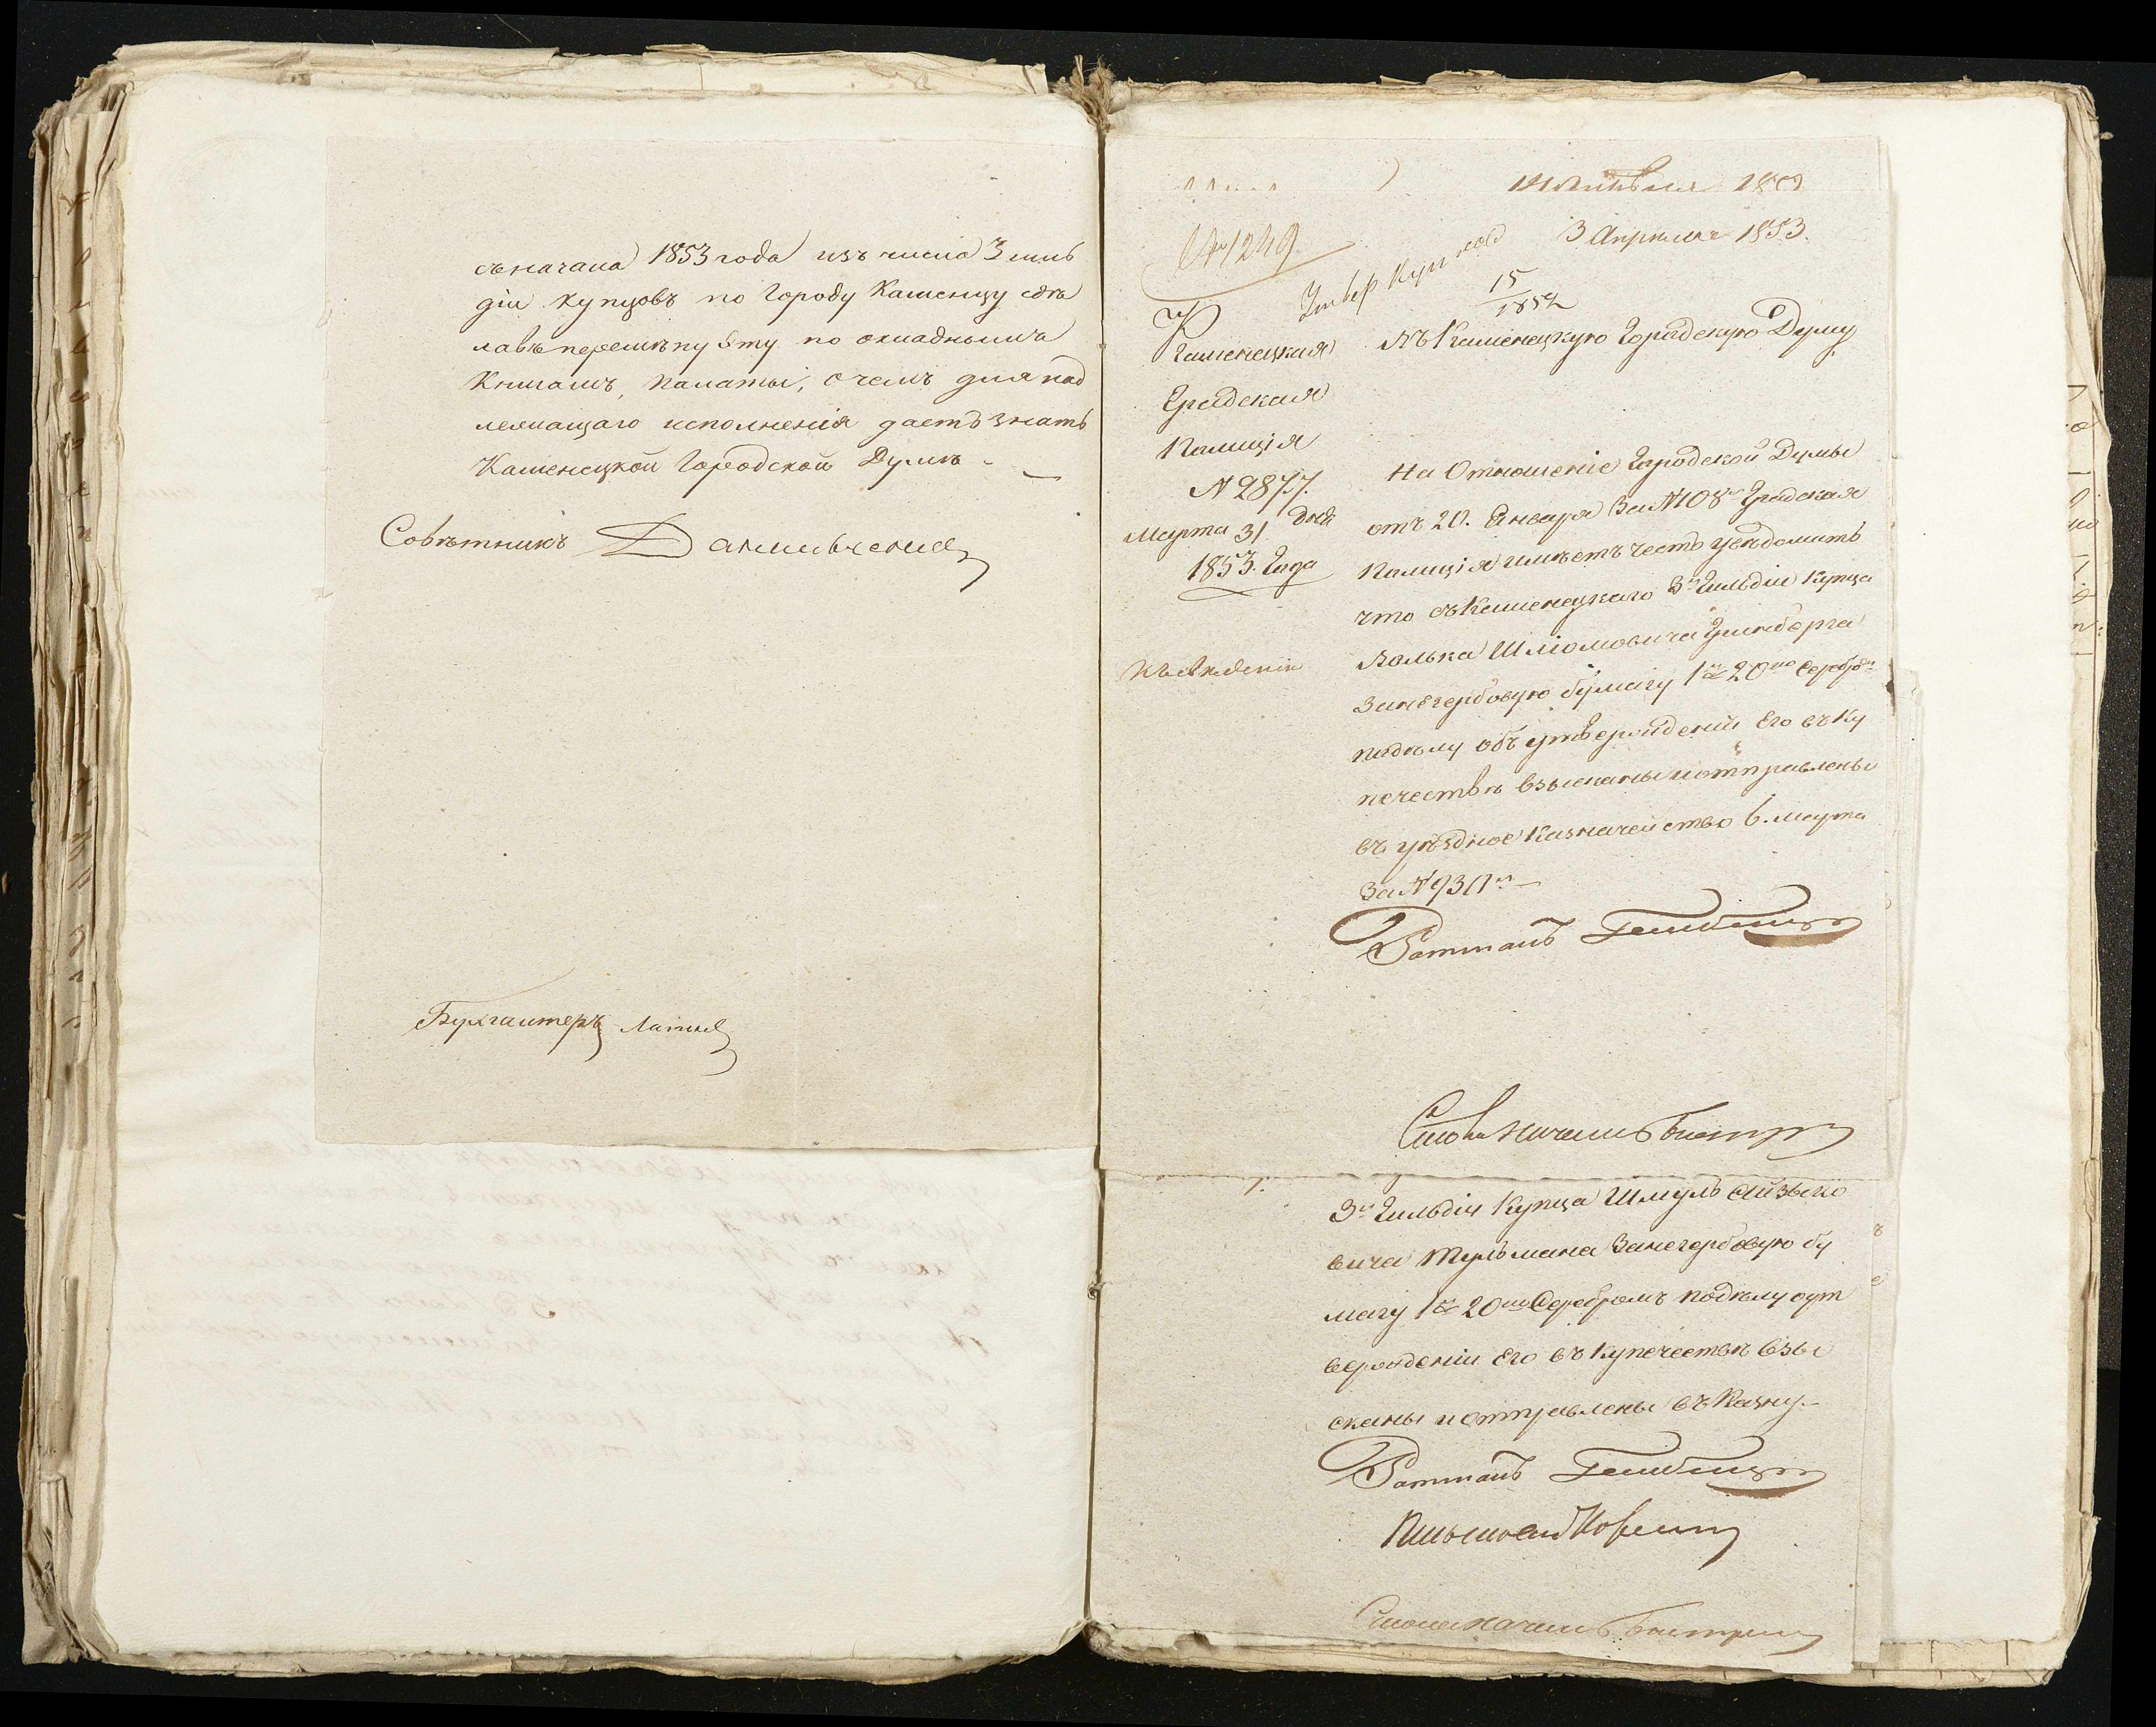 съ начала 1853 года изъ числа 3 гиль
діи купцовъ по Городу Каменцу сдѣ
лавъ перемѣну эту по окладнымъ
Книгамъ Палаты, о чемъ для над
лежащаго исполненія даетъ знать
Каменецкой Городской Думѣ.
Совѣтникъ
Бухгалтеръ
3 Апрѣля 1853.
№ 1249
15
1852
Каменецкая
Градская
Полиція
№ 2877.
Марта 31 дня
1853. Года
Въ Каменецкую Городскую Думу
На Отношеніе Городской Думы
отъ 20. Января За № 108 Градская
Полиція имѣетъ честь увѣдомить
что съ Каменецкаго 3й Гильдіи Купца
Волька Шліомовича Гринберга
За негербовую бумагу 1 20 серебр
по дѣлу объ утвержденіи Его въ Ку
печествѣ взысканы и отправлены
въ уѣздное Казначейство 6. Марта
За №
Ратманъ
Къ свѣденію
3й Гильдіи Купца Шмуль Айзико
вича Тульмана За негербовую бу
магу 1 20 Серебромъ по дѣлу о ут
вержденіи Его въ Купечествѣ взы
сканы и отправлены въ Казну.
Ратманъ